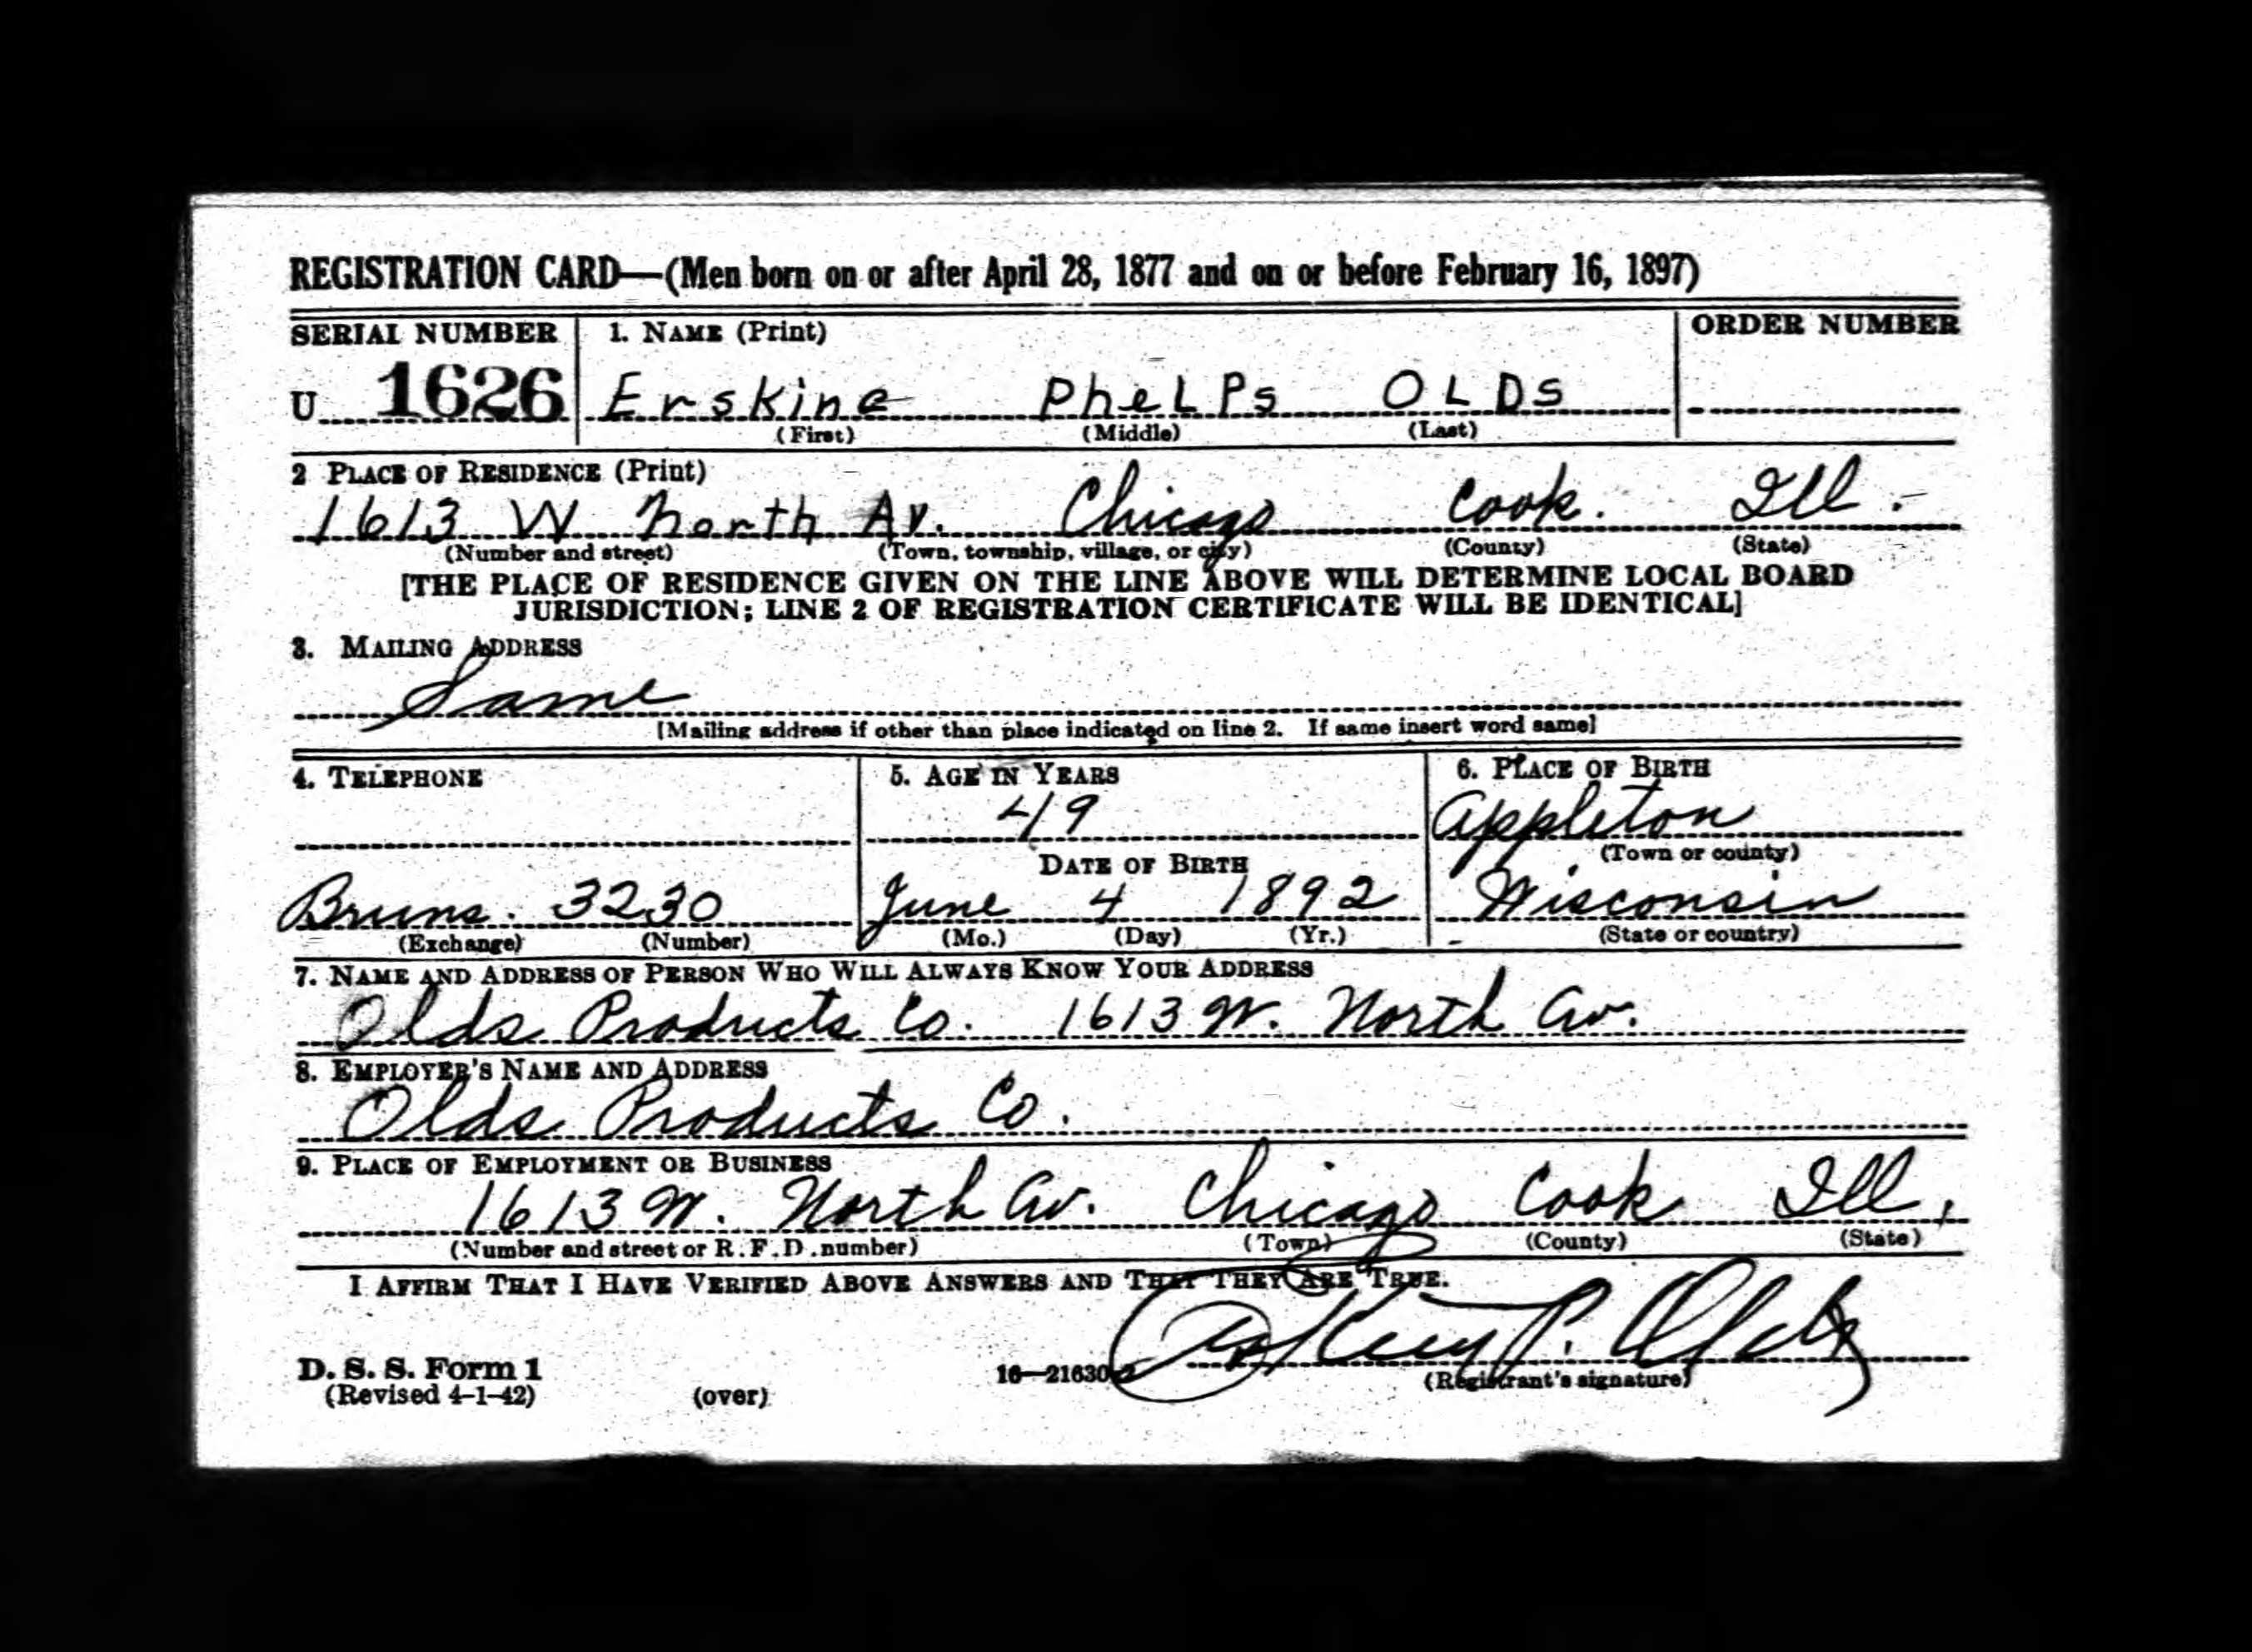 REGISTRATION CARD—(Men born on or after April 28, 1877 and on or before February 16, 1897)
SERIAL NUMBER 1. NAME (Print) ORDER NUMBER
U 1626 Erskine PheLPs OLDS
(First) (Middle) (Last)
2 PLACE OF RESIDENCE (Print)
1613 W North Av. Chicago Cook. Ill.
(Number and street) (Town, township, village, or city) (County) (State)
[THE PLACE OF RESIDENCE GIVEN ON THE LINE ABOVE WILL DETERMINE LOCAL BOARD
JURISDICTION; LINE 2 OF REGISTRATION CERTIFICATE WILL BE IDENTICAL]
3. MAILING ADDRESS
Same
[Mailing address if other than place indicated on line 2. If same insert word same]
4. TELEPHONE 5. AGE IN YEARS 6. PLACE OF BIRTH
49 Appleton
DATE OF BIRTH (Town or county)
Bruns. 3230 June 4 1892 Wisconsin
(Exchange) (Number) (Mo.) (Day) (Yr.) (State or country)
7. NAME AND ADDRESS OF PERSON WHO WILL ALWAYS KNOW YOUR ADDRESS
Olds Products Co. 1613 W. North Av.
8. EMPLOYER'S NAME AND ADDRESS
Olds Products Co.
9. PLACE OF EMPLOYMENT OR BUSINESS
1613 W. North Av. Chicago Cook Ill.
(Number and street or R.F.D. number) (Town) (County) (State)
I AFFIRM THAT I HAVE VERIFIED ABOVE ANSWERS AND THAT THEY ARE TRUE.
P. Olds
D. S. S. Form 1 16—21630-2 (Registrant's signature)
(Revised 4-1-42) (over)